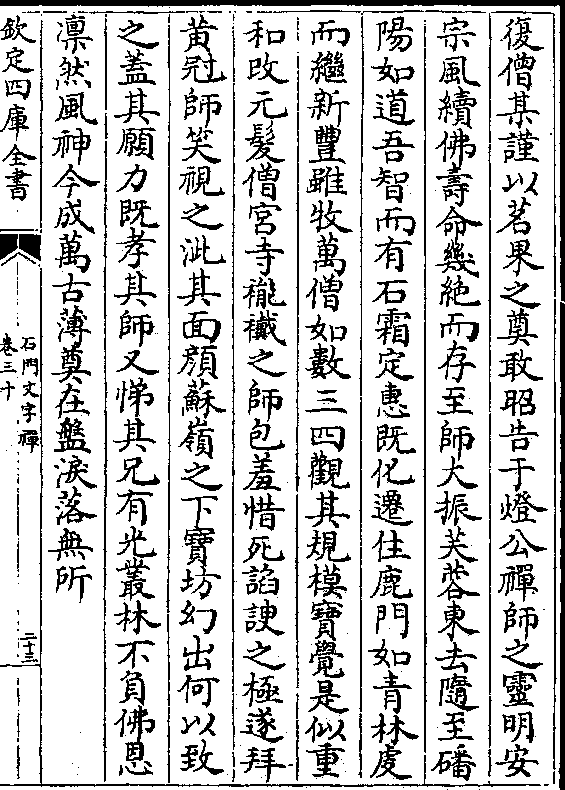 復僧某謹以茗果之奠敢昭告于燈公禪師之靈明安
宗風續佛壽命幾絶而存至師大振芙蓉東去隨至磻
陽如道吾智而有石霜定惠既化遷住鹿門如青林䖍
而繼新豐雖牧萬僧如數三四觀其規模寶覺是似重
和改元髮僧宮寺襱襶之師包羞惜死諂諛之極遂拜
黄冠師笑視之泚其面顔蘇嶺之下寳坊幻出何以致
之蓋其願力既孝其師又悌其兄有光叢林不負佛恩
凛然風神今成萬古薄奠在盤淚落無所
欽定四庫全書
石門文字禪
卷三十
二十三